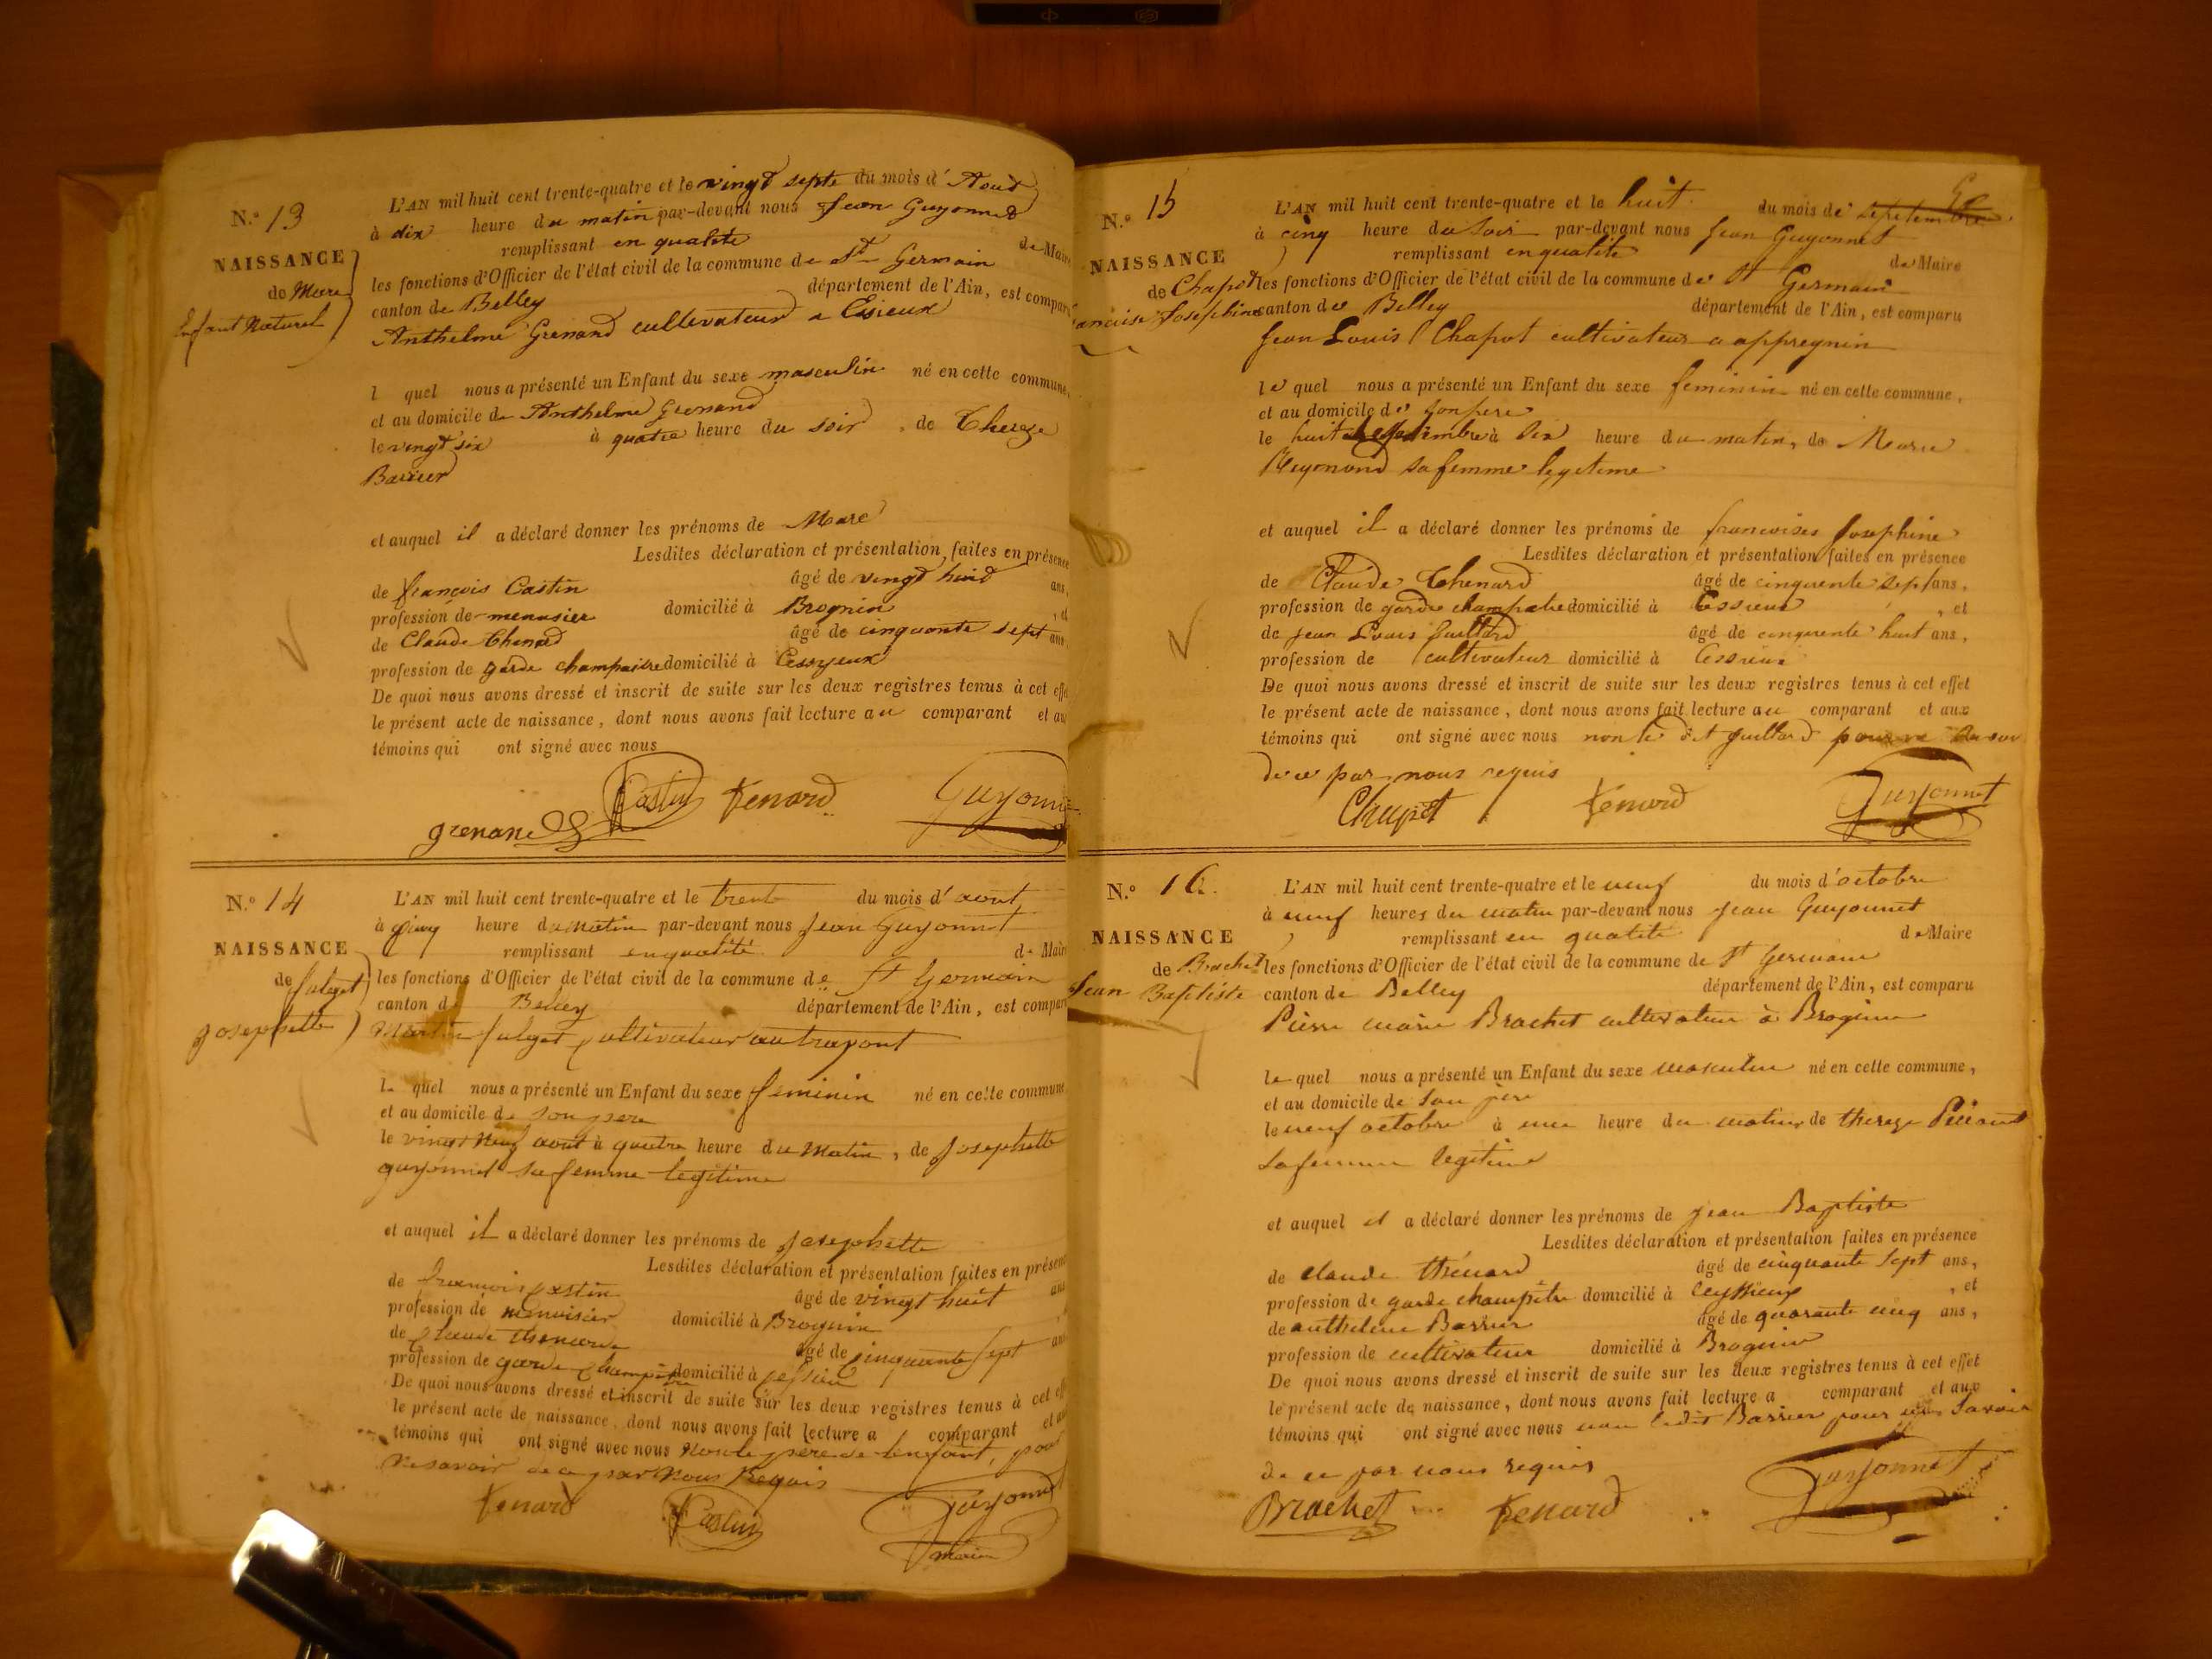 N.º 13
NAISSANCE
de Marc
Enfant Naturel
L'AN mil huit cent trente-quatre et le vingt septe du mois d' Aout
à dix heure du matin par-devant nous Jean Guyonnet
remplissant en qualité de Maire
les fonctions d'Officier de l'état civil de la commune de St Germain
canton de Belley département de l'Ain, est comparu
Anthelme Grenand cultivateur a
l quel nous a présenté un Enfant du sexe masculin né en cette commune,
et au domicile de Anthelme Grenand
le vingt six à quatre heure du soir, de Thereze
Barrier
et auquel il a déclaré donner les prénoms de Marc
Lesdites déclaration et présentation faites en présence
de françois Castin âgé de vingt huid ans,
profession de menusier domicilié à Brognin, et
de Claude Thenard âgé de cinquante sept ans
profession de garde champaitre domicilié à Cessyeux
De quoi nous avons dressé et inscrit de suite sur les deux registres tenus à cet effet
le présent acte de naissance, dont nous avons fait lecture au comparant et au
témoins qui ont signé avec nous
grenand Castin tenard Guyonnet
N.º 14
NAISSANCE
de fulget
Josephette
L'AN mil huit cent trente-quatre et le trente du mois d' aout
à cinq heure du Matin par-devant nous Jean Guyonnet
remplissant en qualité de Maire
les fonctions d'Officier de l'état civil de la commune de St Germain
canton de Belley département de l'Ain, est comparu
Martin fulget cultivateur au trapont
le quel nous a présenté un Enfant du sexe feminin né en cette commune
et au domicile de son pere
le vingt neuf aout à quatre heure du Matin, de Josephette
guyonnet sa femme legitime
et auquel il a déclaré donner les prénoms de Josephette
Lesdites déclaration et présentation faites en présence
de francois Castin âgé de vingt huit ans
profession de menuisier domicilié à Brognin
de Claude thenard âgé de cinquante sept ans
profession de garde Champetre domicilié à cessieu
De quoi nous avons dressé et inscrit de suite sur les deux registres tenus à cet effet
le présent acte de naissance, dont nous avons fait lecture a comparant et aux
témoins qui ont signé avec nous Non le pere de lenfant, pour
ne savoir de ce par Nous Requis
tenard Castin Guyonnet
maire
N.º 15
NAISSANCE
de Chapot
francoise Josephine
L'AN mil huit cent trente-quatre et le huit du mois de septembre
à cinq heure du soir par-devant nous Jean Guyonnet
remplissant en qualité de Maire
les fonctions d'Officier de l'état civil de la commune de St Germain
canton de Belley département de l'Ain, est comparu
Jean Louis Chapot cultivateur a appregnin
le quel nous a présenté un Enfant du sexe feminin né en cette commune,
et au domicile de son pere
le huit septembre à six heure du matin, de Marie
Meyonand sa femme legetime
et auquel il a déclaré donner les prénoms de francoises Josephine
Lesdites déclaration et présentation faites en présence
de Claude Thenard âgé de cinquente sept ans,
profession de garde champatre domicilié à Cessieux, et
de jean Louis Juillard âgé de cinquente huit ans,
profession de cultivateur domicilié à Cessieux
De quoi nous avons dressé et inscrit de suite sur les deux registres tenus à cet effet
le présent acte de naissance, dont nous avons fait lecture au comparant et aux
témoins qui ont signé avec nous non le dit Juillard pour ne savoir
de ce par nous requis
Chapot tenard Guyonnet
N.º 16.
NAISSANCE
de Brachet
Jean Baptiste
L'AN mil huit cent trente-quatre et le neuf du mois d'octobre
à neuf heures du matin par-devant nous jean Guyonnet
remplissant en qualité de Maire
les fonctions d'Officier de l'état civil de la commune de St Germain
canton de Belley département de l'Ain, est comparu
Pierre marie Brachet cultivateur à Brognin
le quel nous a présenté un Enfant du sexe masculin né en cette commune,
et au domicile de son père
le neuf octobre à une heure du matin, de thereze
sa femme legitime
et auquel il a déclaré donner les prénoms de jean Baptiste
Lesdites déclaration et présentation faites en présence
de claude thénard âgé de cinquante sept ans,
profession de garde champêtre domicilié à ceyssieux, et
de anthelme Barrier âgé de quarante cinq ans,
profession de cultivateur domicilié à Brognin
De quoi nous avons dressé et inscrit de suite sur les deux registres tenus à cet effet
le présent acte de naissance, dont nous avons fait lecture a comparant et aux
témoins qui ont signé avec nous non ledit Barrier pour ne savoir
de ce par nous requis
Brachet tenard Guyonnet